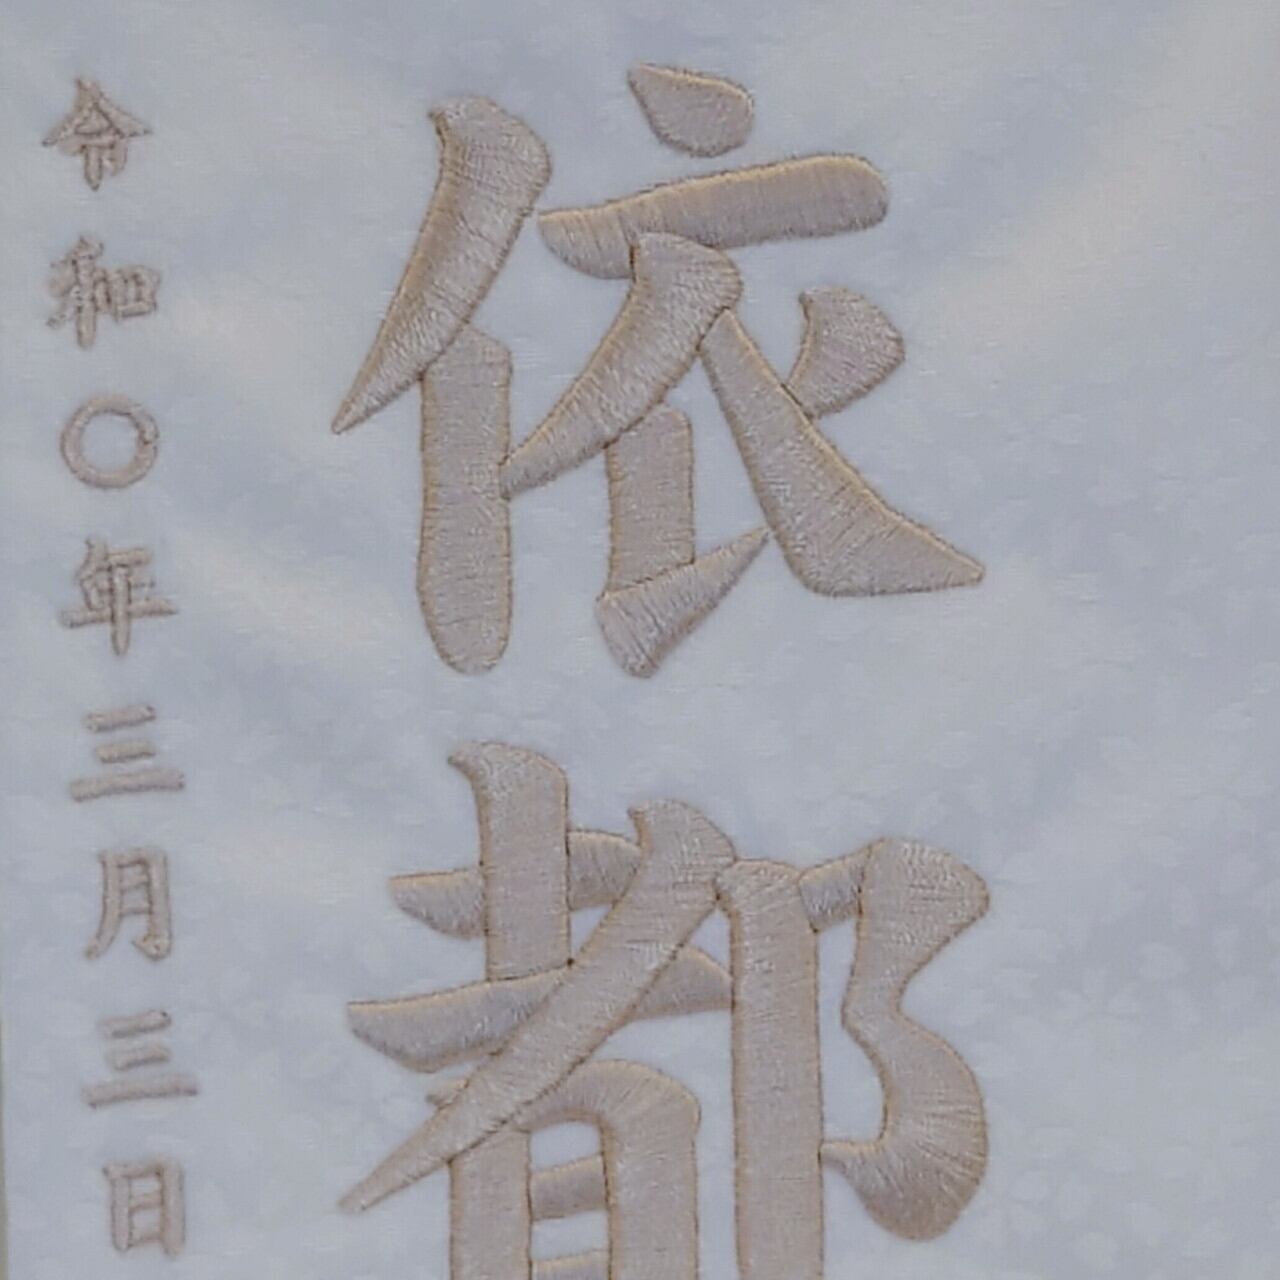 依都
令和〇年三月三日